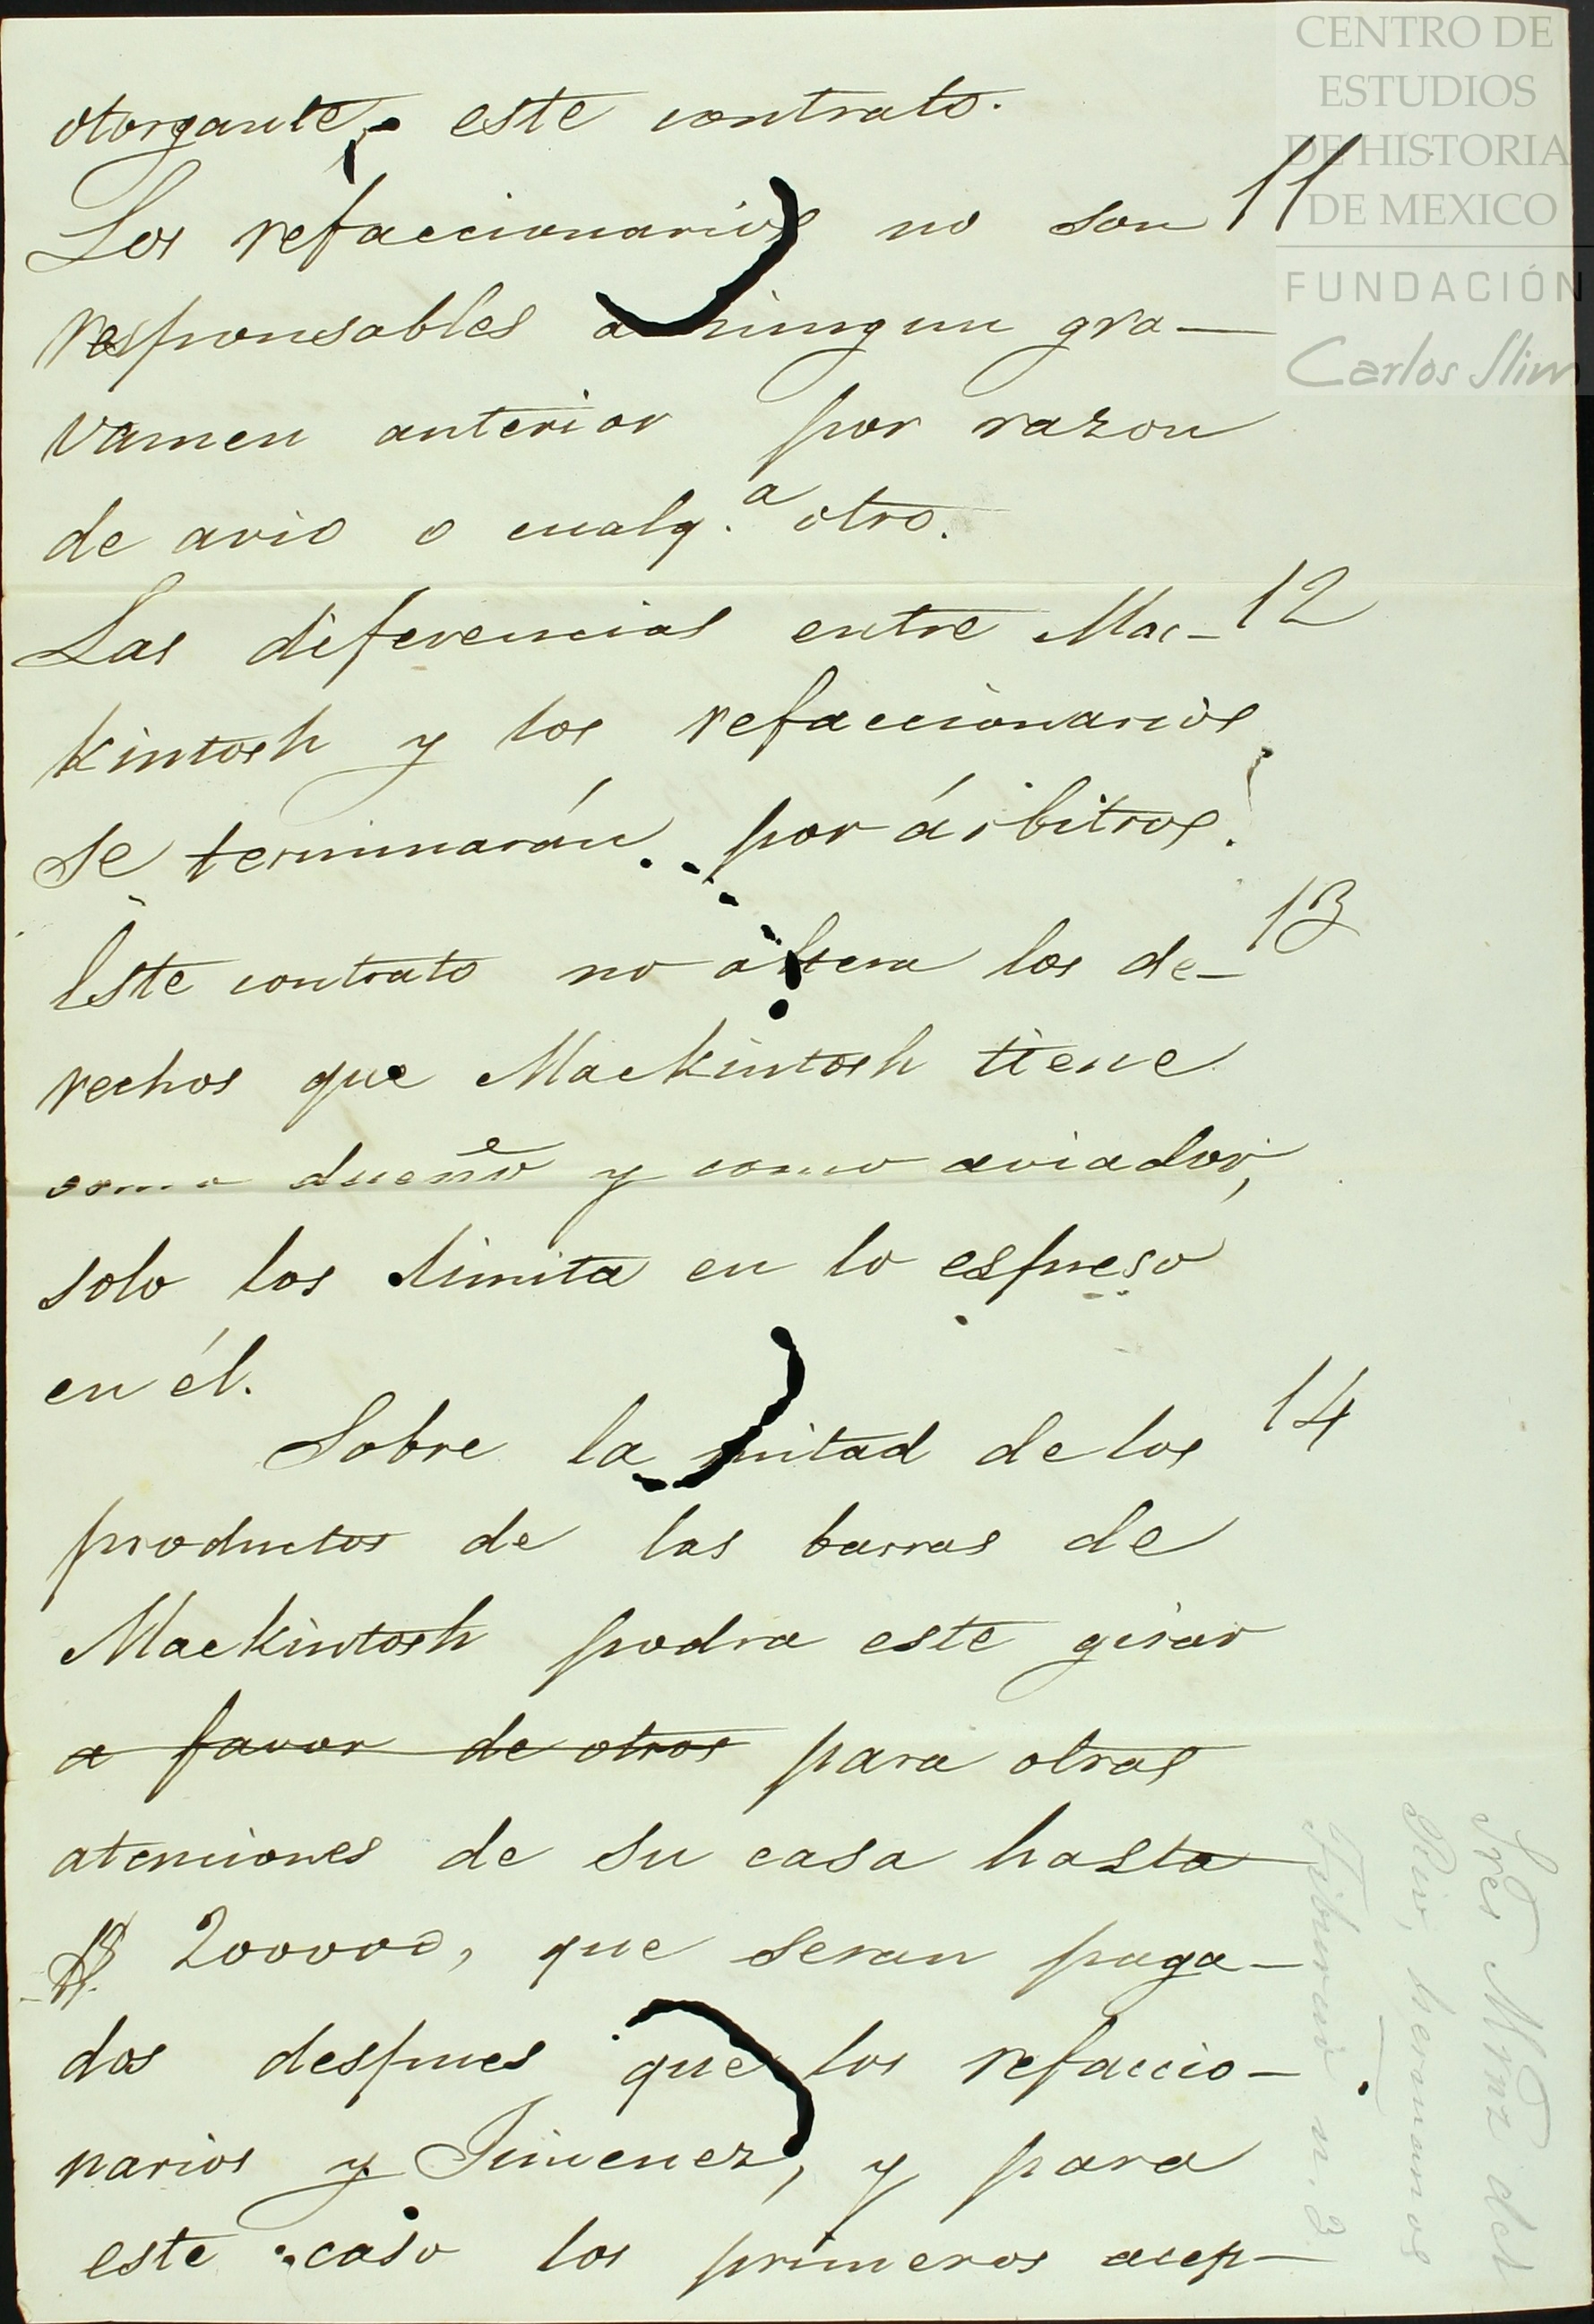 otorgante este contrato.
Los refaccionarios no son 11
responsables a ningun gra-
vamen anterior por razon
de avio o cualq.a otro.
Las diferencias entre Mac- 12
kintosh y los refaccionarios
se terminarán por árbitros.
Este contrato no altera los de- 13
rechos que Mackintosh tiene
como dueño y como aviador,
solo los limita en lo espreso
en él.
Sobre la mitad de los 14
productos de las barras de
Mackintosh podra este girar
a favor de otros para otras
atenciones de su casa hasta
$ 200000, que seran paga-
dos despues que los refaccio-
narios y Jimenez, y para
este caso los primeros acep-
Sres Mrnz del
Rio, hermanos
Tiburcio n. 3
CENTRO DE
ESTUDIOS
DE HISTORIA
DE MEXICO
FUNDACIÓN
Carlos Slim